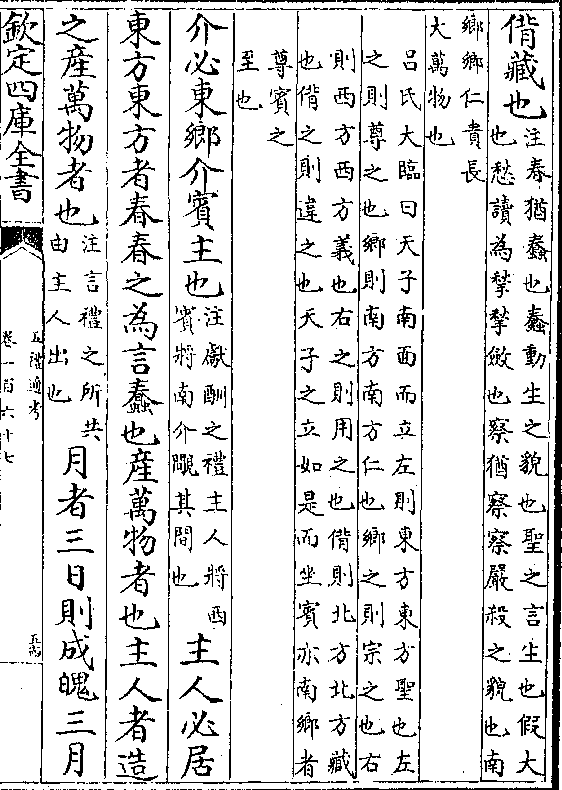 偝藏也
注春猶蠢也蠢動生之貌也聖之言生也假大
也愁讀為揫揫斂也察猶察察嚴殺之貌也南
鄉鄉仁貴長
大萬物也
吕氏大臨曰天子南面而立左則東方東方聖也左
之則尊之也鄉則南方南方仁也鄉之則宗之也右
則西方西方義也右之則用之也偝則北方北方藏
也偝之則違之也天子之立如是而坐賓亦南鄉者
尊賓之
至也
介必東鄉介賓主也
注獻酬之禮主人將西
賓將南介覸其間也
主人必居
東方東方者春春之為言蠢也産萬物者也主人者造
之産萬物者也
注言禮之所共
由主人出也
月者三日則成魄三月
欽定四庫全書
五禮通考
卷一百六十七